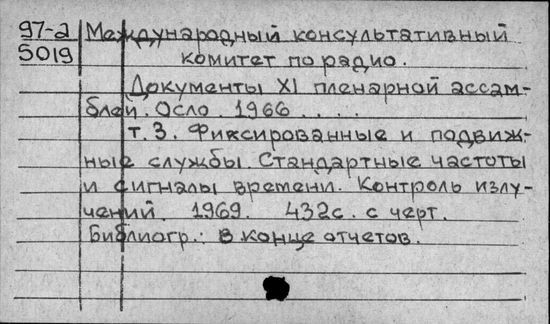 97-а Международный консультативный
5019 комитет по радио.
Документы XI пленарной ассам-
блей. Осло. 1966 . . . .
т. 3. Фиксированные и подвиж-
ные службы. Стандартные частоты
и сигналы времени. Контроль излу-
чений. 1969. 432с. с черт.
Библиогр.: в конце отчетов.